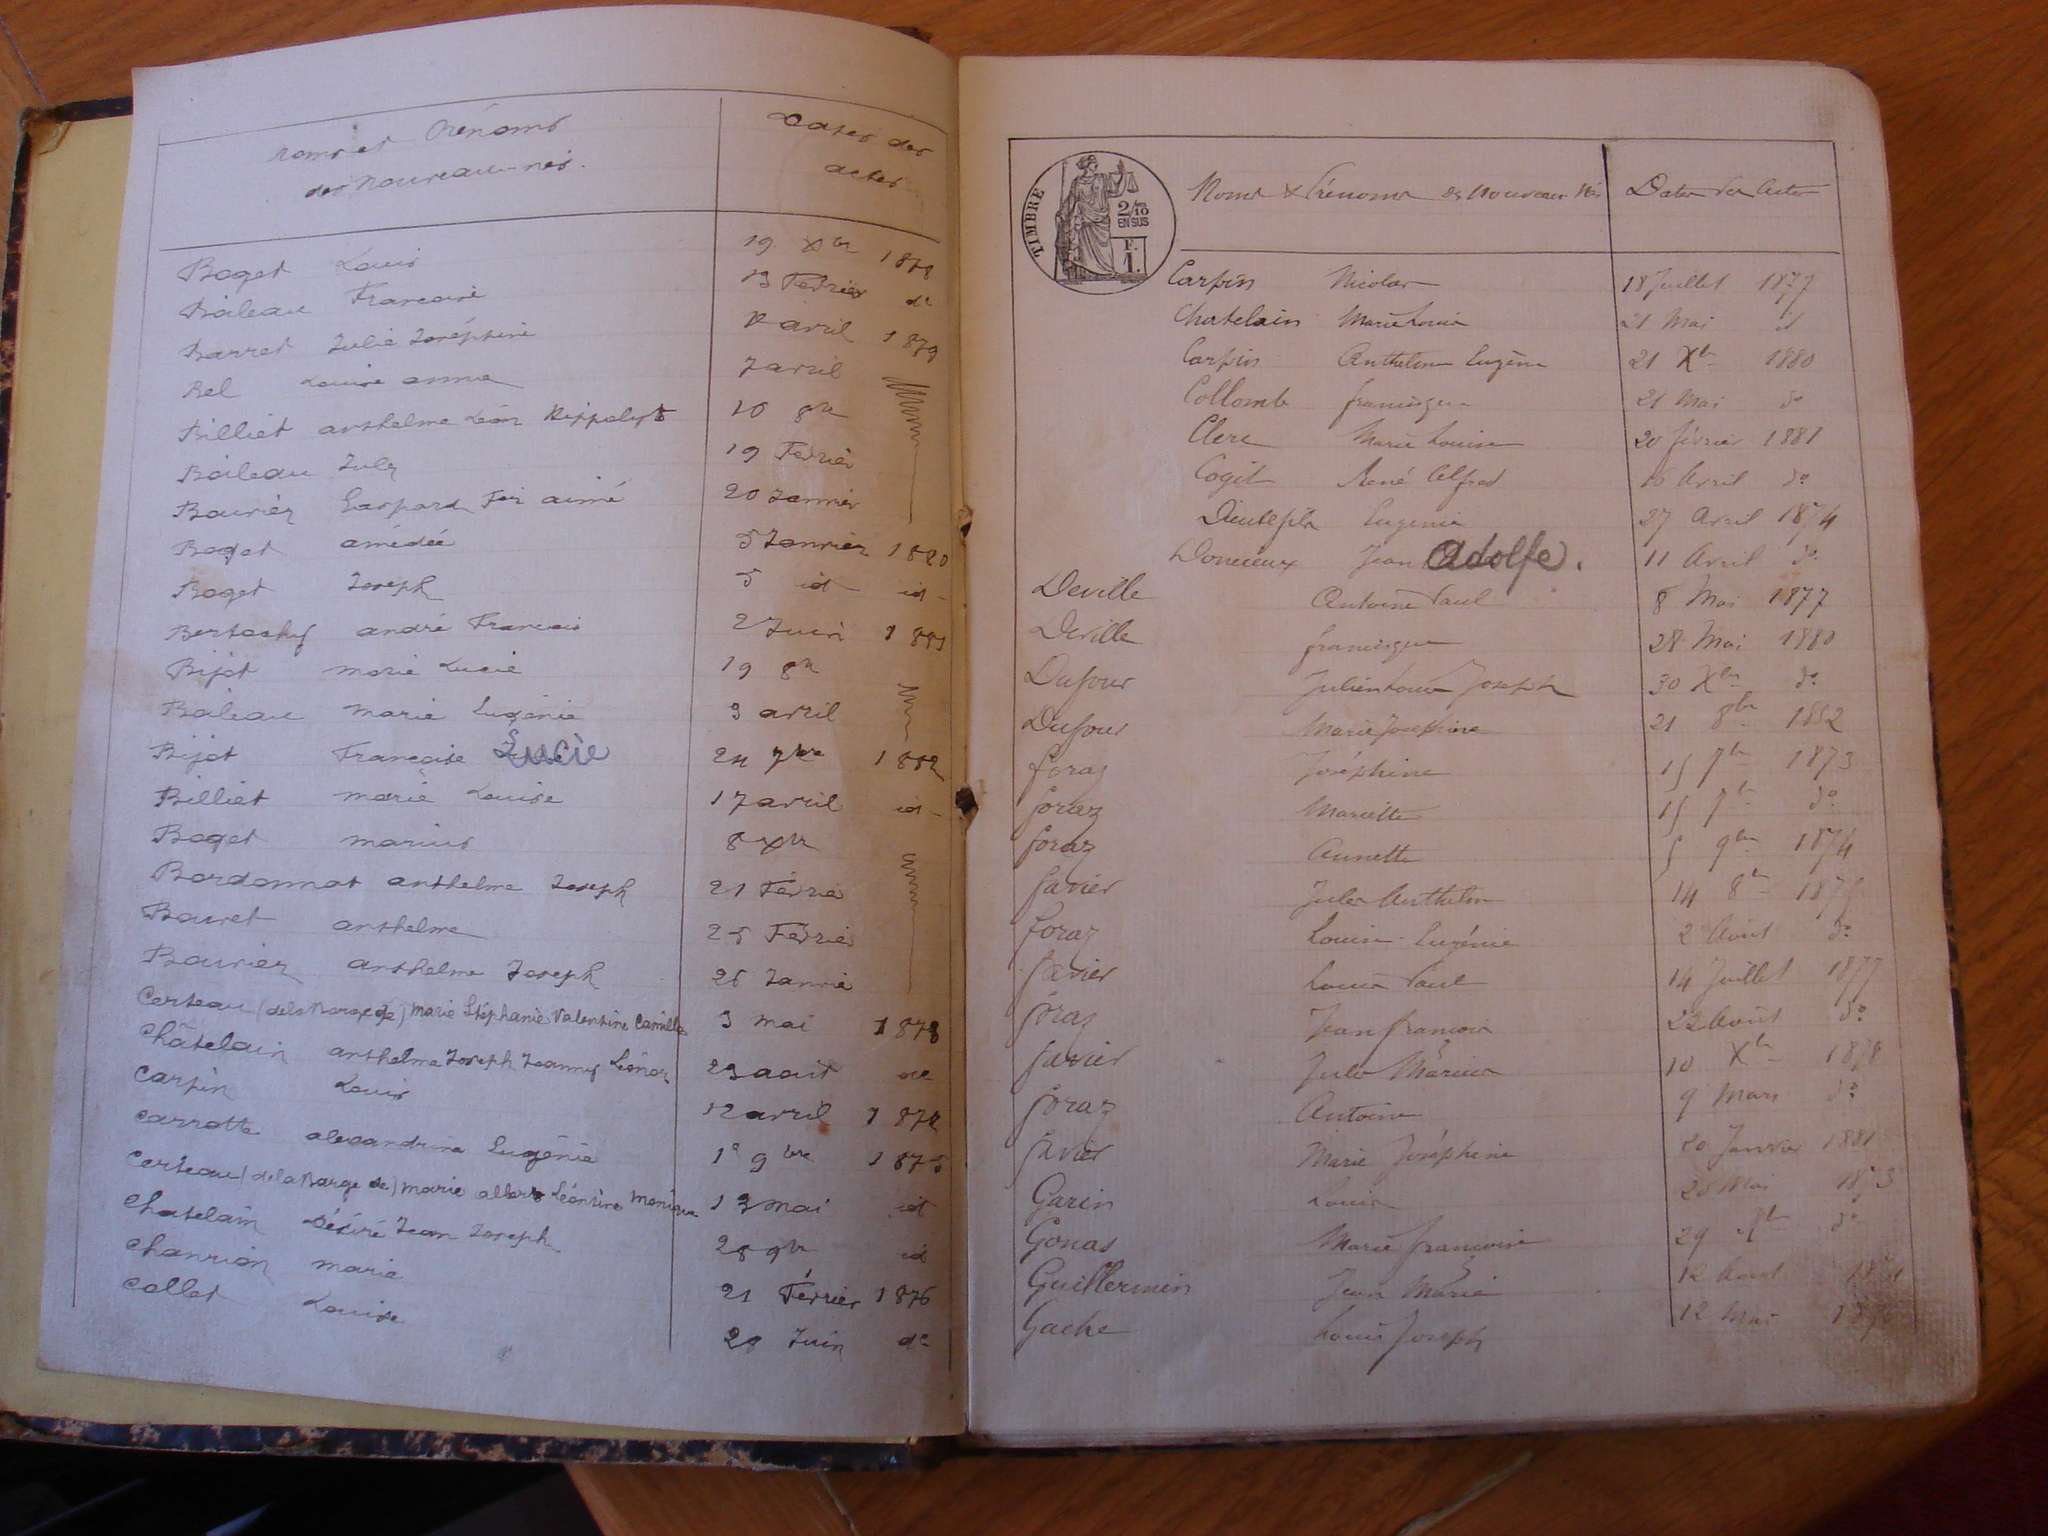 Noms et Prénoms
des Nouveau-nés.
Dates des
actes
Boget Louis 19 Xbre 1878
Boileau Françoise 13 Février do
Barret Julie Joséphine avril 1879
Bel Louise anna 7 avril
Billiet anthelme Léon Hippolyte 10 8bre
Boileau July 19 Février
Bouvier Gaspard aimé 20 Janvier
Boget amédée 5 Janvier 1880
Boget Joseph 5 id id
andré François 2 Juin 1881
Bijot marie Lucie 19 8bre
Boileau marie Eugénie 3 avril
Bijot Françoise Lucie 24 7bre 1882
Billiet marie Louise 17 avril id
Boget marius 8 Xbre
Bordonnat anthelme Joseph 21 Févrie
Bouvet anthelme 25 Févrie
Bouvier anthelme Joseph 26 Janvie
Certeau (de la Barge de) marie Stéphanie Valentine Camille 3 mai 1873
Châtelain anthelme Joseph Jeanny Léonor 23 aout do
Carpin Louis 12 avril 1874
Carrotte alexandrine Eugénie 1e 9bre 1875
Certeau (de la Barge de) marie Léontine Monique 13 mai id
Chatelain Désiré Jean Joseph 28 9bre id
Chanrion marie 21 Février 1876
Collet Louise 28 Juin do
TIMBRE
2/10
EN SUS
F.
1.
Noms & Prénoms des Nouveau Nés Dates des Actes
Carpin Nicolas 18 Juillet 1877
Chatelain Marie Louise 21 Mai do
Carpin Anthelme Eugène 21 Xbre 1880
Collomb francisque 21 Mai do
Clerc Marie Louise 20 février 1881
Cogit René Alfred 16 Avril do
Dieulefils Eugenie 27 Avril 1874
Donnieux Jean Adolfe. 11 Avril do
Deville Antoine Paul 8 Mai 1877
Deville francisque 28 Mai 1880
Dufour Julien Louis Joseph 30 Xbre do
Dufour Marie Josephine 21 8bre 1882
foraz Joséphine 15 7bre 1873
foraz Mariette 15 7bre do
foraz Annette 5 9bre 1874
favier Jules Anthelme 14 8bre
foraz Louise Eugénie 2 Août do
favier Louis Paul 14 Juillet 1877
foraz Jean françois 22 Août do
favier Jules Marius 10 Xbre 1878
foraz Antoine 9 Mars do
favier Marie Joséphine 20 Janvier 1881
Garin Louis 28 Mai 1873
Gonas Marie françoise 29 do
Guillermin Jean Marie 12 Aout
Gache Louis Joseph 12 Mai